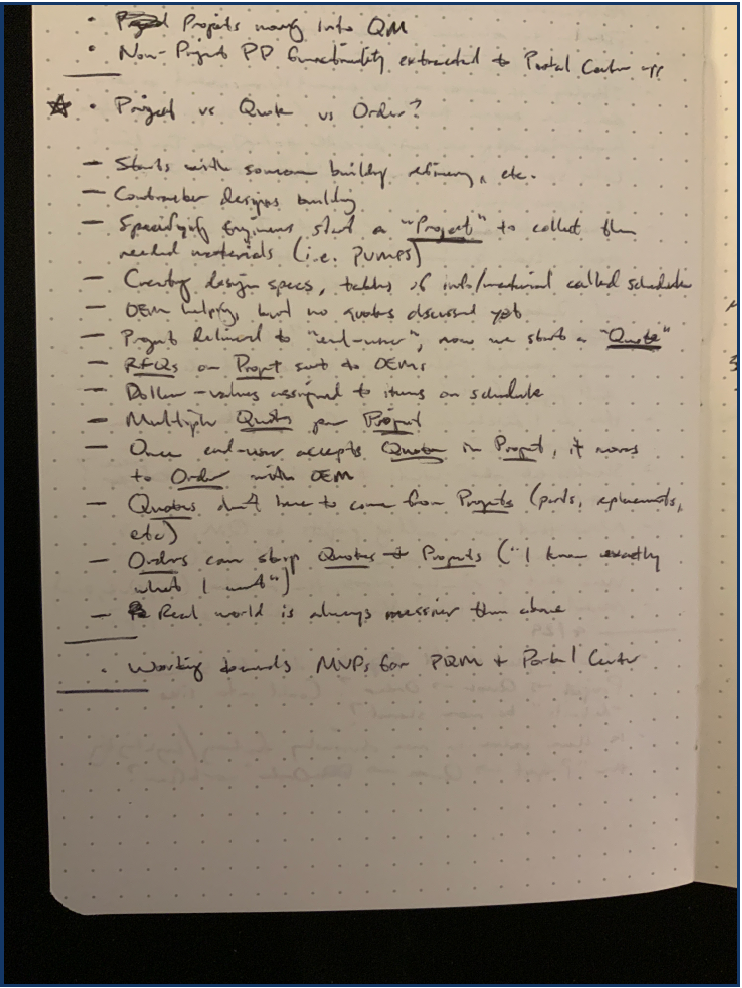 • Projects moving into QM
• Non-Project PP functionality extracted to Portal Center app
☆ • Project vs Quote vs Order?
— Starts with someone building refinery, etc.
— Contractor designs building
— Specifying Engineers start a "Project" to collect the
needed materials (i.e. PUMPS)
— Creating design specs, tables of info/material called schedule
— OEM helping, but no quotes discussed yet
— Project delivered to "end-user", now we start a "Quote"
— RFQs on Project sent to OEMs
— Dollar-values assigned to items on schedule
— Multiple Quotes per Project
— Once end-user accepts Quote in Project, it moves
to Order with OEM
— Quotes don't have to come from Projects (parts, replacements,
etc)
— Orders can skip Quotes + Projects ("I know exactly
what I want")
— Real world is always messier than above
• Working towards MVPs for PQM + Portal Center